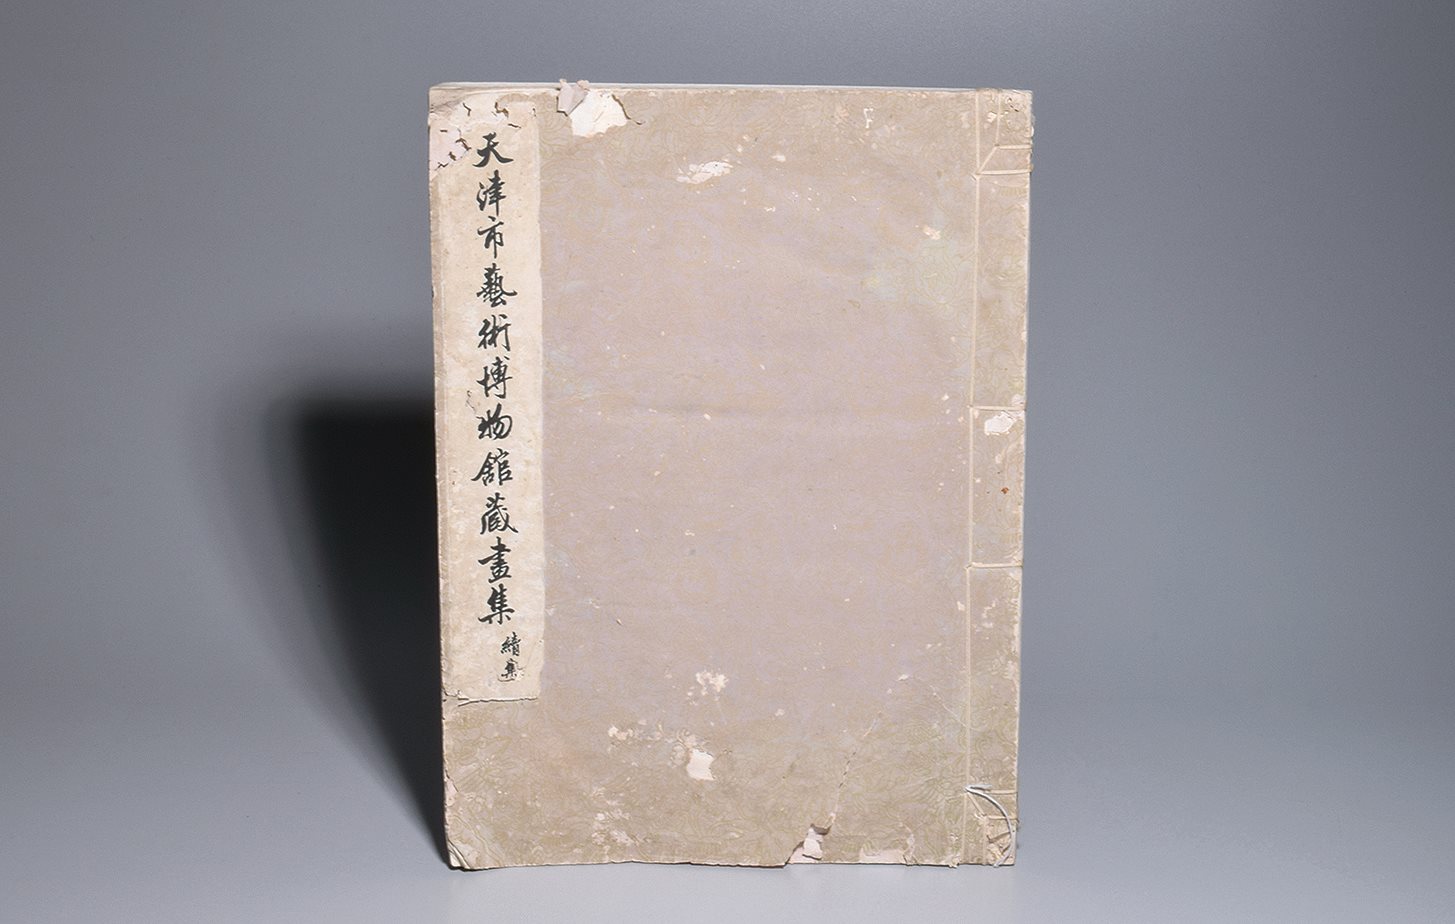 天津市藝術博物舘藏畫集
續集